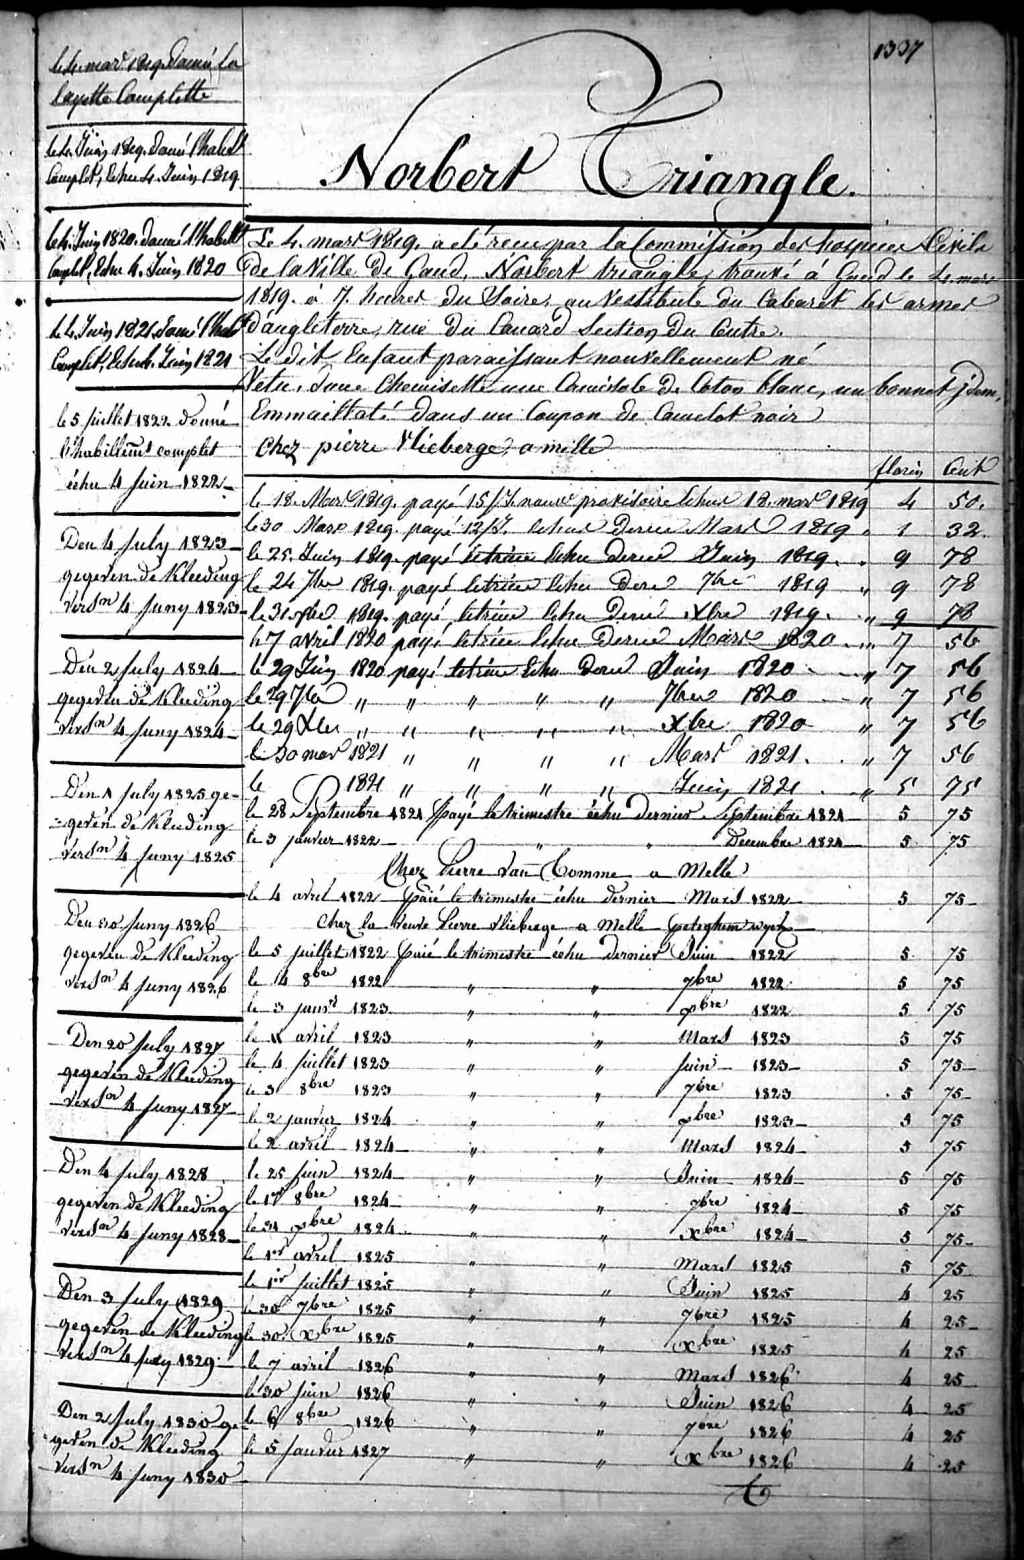 1337
Norbert Triangle.
le 4. mars 1819. donné la
layette Complette
le 4. Juin 1819. donné l'habill.t
Complet, echu 4. Juin 1819
le 4. Juin 1820. donné l'habill.t
Complet, Echu 4. Juin 1820
le 4. Juin 1821. donné l'hab.t
Complet, Echu 4. Juin 1821
le 5 juillet 1822 donné
l'habillem.t complet
échu 4 Juin 1822
Den 4 July 1823
gegeven de Kleeding
versn 4 Juny 1823
Den 2 July 1824
gegeven de Kleeding
versn 4 Juny 1824
Den 1 July 1825 ge-
geven de Kleeding
versn 4 Juny 1825
Den 30 Juny 1826
gegeven de Kleeding
versn 4 Juny 1826
Den 20 July 1827
gegeven de Kleeding
versn 4 Juny 1827
Den 4 July 1828
gegeven de Kleeding
versn 4 Juny 1828
Den 3 July 1829
gegeven de Kleeding
versn 4 Juny 1829
Den 2 July 1830 ge-
geven de Kleeding
versn 4 Juny 1830
Le 4. mars 1819. a été recu par la Commission des hospices Civils
de la Ville de Gand, Norbert triangle, trouvé à Gand le 4. mars
1819. à 7. heures du Soire, au Vestibule du Cabaret les armes
d'angleterre, rue du Canard Section du Centre.
Le dit Enfant paraissant nouvellement né
Vetu, d'une Chemisette une Camisole de Coton blanc, un bonnet idem,
Emmailloté dans un Coupon de Camelot noir
Chez pierre Vlieberge, a melle
florin Cent
le 18. Mars 1819. payé 15/ provisoire Echu 18. mars 1819 4 50.
le 30 Mars 1819. payé 12/ echu dernier Mars 1819 " 1 32.
le 25. Juin 1819. payé letrim Echu dernier Juin 1819. " 9 78
le 24 7bre 1819. payé letrim echu dern 7bre 1819 " 9 78
le 31 xbre 1819. payé letrim echu dernier Xbre 1819. " 9 78
le 7 avril 1820 payé letrim Echu dernier Mars 1820 " 7 56
le 29 Juin 1820 payé letrim Echu dern Juin 1820 " 7 56
le 29 7br " " " " " 7bre 1820 " 7 56
le 29 Xbr " " " " " xbre 1820 " 7 56
le 30 mars 1821 " " " " Mars 1821. " 7 56
le 1821 " " " " Juin 1821 " 5 75
le 28 Septembre 1821 payé le trimestre échu dernier Septembre 1821 5 75
le 3 janvier 1822 " " Decembre 1821 5 75
Chez Pierre Van Tomme a Melle
le 4 avril 1822 Payé le trimestre échu dernier Mars 1822 5 75
Chez la Veuve Pierre Vlieberge a Melle
le 5 juillet 1822 Payé le trimestre échu dernier Juin 1822 5 75
le 14 8bre 1822 " " 7bre 1822 5 75
le 3 janvr 1823 " " xbre 1822 5 75
le 4 avril 1823 " " Mars 1823 5 75
le 4 juillet 1823 " " Juin 1823 5 75
le 3 8bre 1823 " " 7bre 1823 5 75
le 2 janvier 1824 " " xbre 1823 5 75
le 2 avril 1824 " " Mars 1824 5 75
le 25 juin 1824 " " Juin 1824 5 75
le 1er 8bre 1824 " " 7bre 1824 5 75
le 31 xbre 1824 " " xbre 1824 5 75
le 1er avril 1825 " " Mars 1825 5 75
le 1er juillet 1825 " " Juin 1825 4 25
le 30 7bre 1825 " " 7bre 1825 4 25
le 30 Xbre 1825 " " Xbre 1825 4 25
le 7 avril 1826 " " Mars 1826 4 25
le 30 juin 1826 " " Juin 1826 4 25
le 6 8bre 1826 " " 7bre 1826 4 25
le 5 Janvier 1827 " " Xbre 1826 4 25